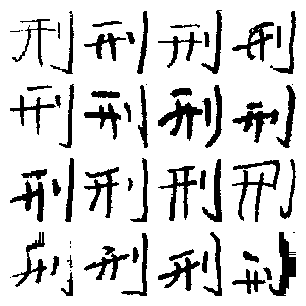 刑刑刑刑
刑刑刑刑
刑刑刑刑
刑刑刑刑